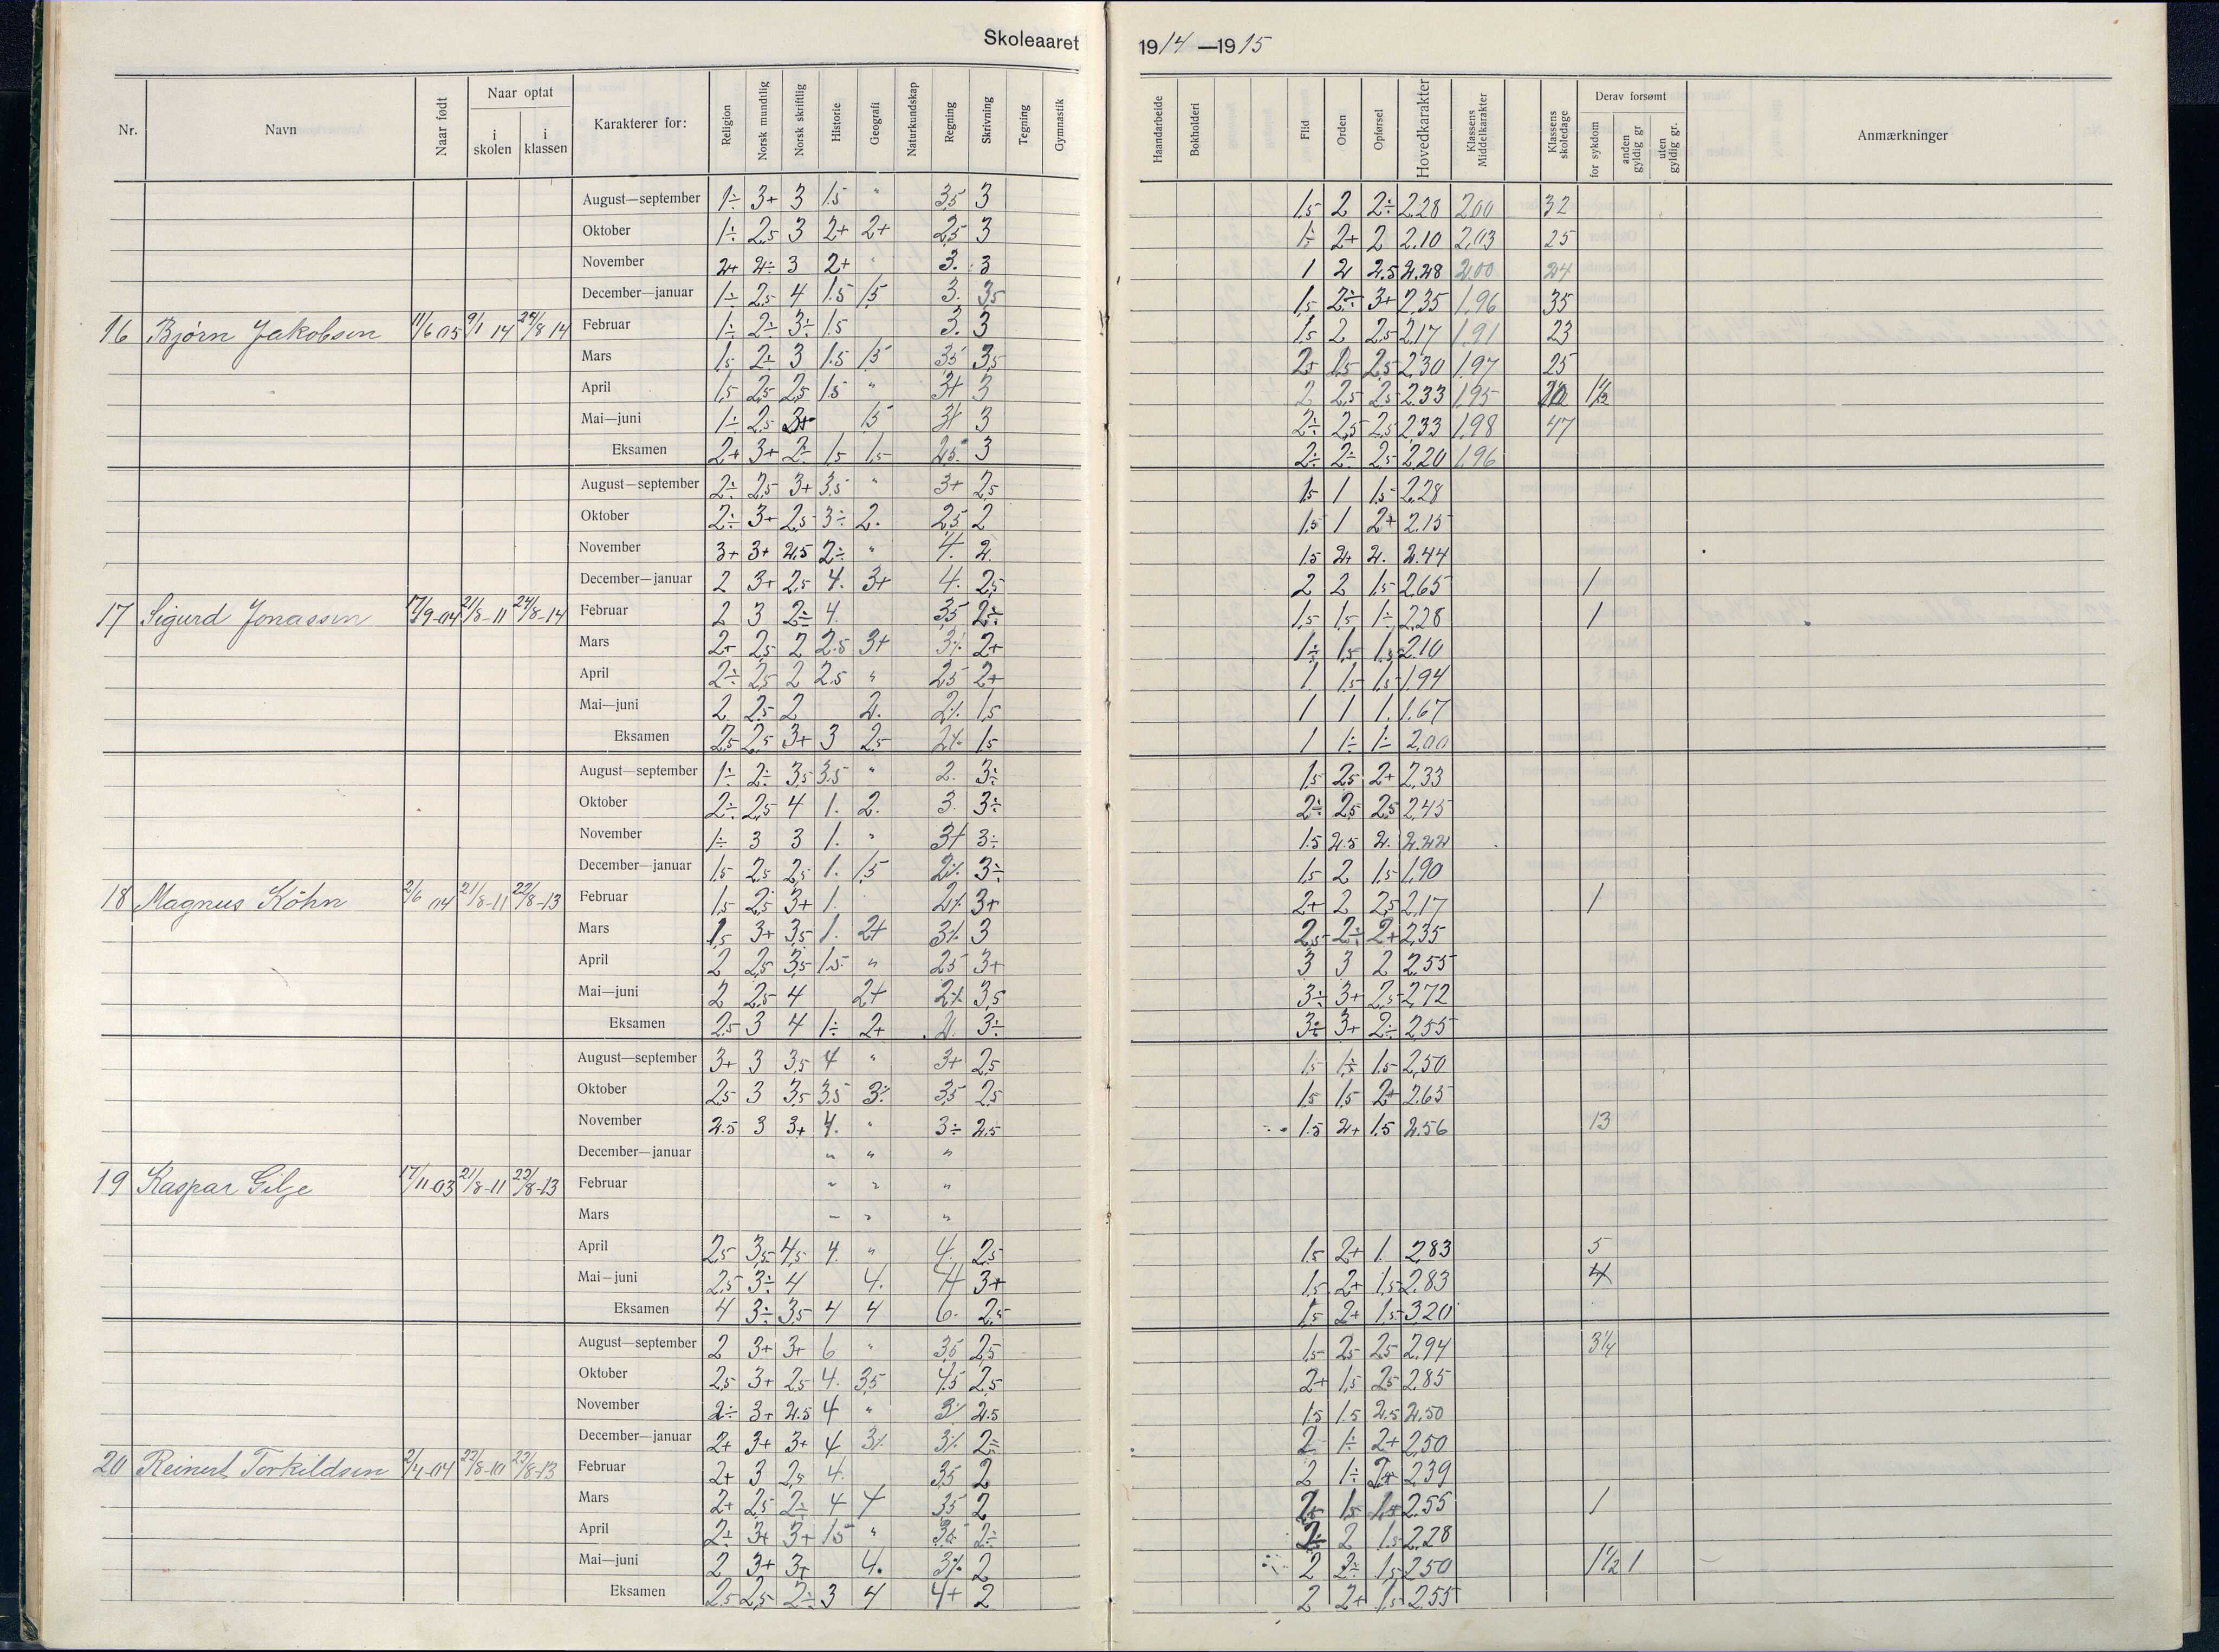 Skoleaaret 1914—1915
Nr. Navn Naar født Naar optat i skolen i klassen Karakterer for: Religion Norsk mundtlig Norsk skriftlig Historie Geografi Naturkundskap Regning Skrivning Tegning Gymnastik Haandarbeide Bokholderi Flid Orden Opførsel Hovedkarakter Klassens Middelkarakter Klassens skoledage Derav forsømt for sykdom anden gyldig gr. uten gyldig gr. Anmærkninger
August—september 1÷ 3+ 3 1.5 " 3,5 3 1,5 2 2÷ 2.28 2.00 32
Oktober 1÷ 2,5 3 2+ 2+ 2,5 3 1÷ 2+ 2 2.10 2,03 25
November 2+ 2÷ 3 2+ " 3. 3 1 2 2.5 2.28 2.00 24
December—januar 1÷ 2,5 4 1.5 1,5 3. 3,5 1,5 2÷ 3+ 2,35 1,96 35
16 Bjørn Jakobsen 11/6 05 9/1 14 24/8 14 Februar 1÷ 2÷ 3÷ 1.5 3. 3 1,5 2 2,5 2,17 1,91 23
Mars 1,5 2÷ 3 1.5 1,5 3,5 3,5 2+ 1,5 2,5 2,30 1,97 25
April 1,5 2,5 2,5 1.5 " 3+ 3 2 2,5 2,5 2,33 1,95 1½
Mai—juni 1÷ 2,5 3+ 1,5 3+ 3 2÷ 2,5 2,5 2,33 1,98 47
Eksamen 2+ 3+ 2÷ 1,5 1,5 2,5 3 2÷ 2÷ 2,5 2,20 1,96
August—september 2÷ 2,5 3+ 3,5 " 3+ 2,5 1,5 1 1,5 2,28
Oktober 2÷ 3+ 2,5 3÷ 2. 2,5 2 1,5 1 2+ 2.15
November 3+ 3+ 2.5 2÷ " 4. 2. 1.5 2+ 2. 2.44
December—januar 2 3+ 2,5 4. 3+ 4. 2,5 2 2 1,5 2,65 1
17 Sigurd Jonassen 17/9-04 21/8-11 24/8-14 Februar 2 3 2÷ 4. 3,5 2÷ 1,5 1,5 1÷ 2,28 1
Mars 2+ 2,5 2 2.5 3+ 3÷ 2+ 1÷ 1,5 1,5 2.10
April 2÷ 2,5 2 2.5 " 2,5 2+ 1 1,5 1,5 1,94
Mai—juni 2 2,5 2 2. 2÷ 1,5 1 1 1. 1.67
Eksamen 2,5 2,5 3+ 3 2,5 2÷ 1,5 1 1÷ 1÷ 2,00
August—september 1÷ 2÷ 3,5 3.5 " 2. 3÷ 1,5 2,5 2+ 2,33
Oktober 2÷ 2,5 4 1. 2. 3. 3÷ 2÷ 2,5 2,5 2,45
November 1÷ 3 3 1. " 3+ 3÷ 1.5 2.5 2. 2.22
December—januar 1,5 2,5 2,5 1. 1,5 2÷ 3÷ 1,5 2 1,5 1,90
18 Magnus Köhn 2/6 04 21/8-11 22/8-13 Februar 1,5 2,5 3+ 1. 2÷ 3+ 2+ 2 2,5 2,17 1
Mars 1,5 3+ 3,5 1. 2+ 3÷ 3 2,5 2÷ 2+ 2,35
April 2 2,5 3,5 1.5 " 2,5 3+ 3 3 2 2,55
Mai—juni 2 2,5 4 2+ 2÷ 3,5 3÷ 3+ 2,5 2,72
Eksamen 2,5 3 4 1÷ 2+ 2. 3÷ 3÷ 3+ 2÷ 2,55
August—september 3+ 3 3,5 4 " 3+ 2,5 1,5 1÷ 1.5 2,50
Oktober 2,5 3 3,5 3,5 3÷ 3,5 2,5 1,5 1,5 2+ 2.65
November 2.5 3 3+ 4. " 3÷ 2.5 1.5 2+ 1.5 2.56 13
December—januar " " "
19 Kaspar Gilje 17/11-03 21/8-11 22/8-13 Februar " " "
Mars " " "
April 2,5 3,5 4,5 4. " 4. 2,5 1,5 2+ 1. 2,83 5
Mai—juni 2,5 3÷ 4 4. 4+ 3+ 1,5 2+ 1,5 2,83 4
Eksamen 4 3÷ 3,5 4 4 6. 2,5 1,5 2+ 1,5 3,20
August—september 2 3+ 3+ 6 " 3,5 2,5 1,5 2,5 2,5 2,94 3¼
Oktober 2,5 3+ 2,5 4. 3,5 4,5 2,5 2+ 1,5 2,5 2,85
November 2÷ 3+ 2.5 4 " 3÷ 2.5 1.5 1.5 2.5 2,50
December—januar 2+ 3+ 3+ 4 3÷ 3÷ 2÷ 2 1÷ 2+ 2,50
20 Reinert Torkildsen 2/4-04 22/8-10 22/8-13 Februar 2+ 3 2,5 4. 3,5 2 2 1÷ 2+ 2,39
Mars 2+ 2,5 2÷ 4 4 3,5 2 2+ 1,5 1,5 2,55 1
April 2÷ 3+ 3+ 1,5 " 3,5 2÷ 2÷ 2 1,5 2,28
Mai—juni 2 3+ 3+ 4. 3÷ 2 2 2÷ 1,5 2,50 1½ 1
Eksamen 2,5 2,5 2÷ 3 4 4+ 2 2 2+ 1,5 2,55